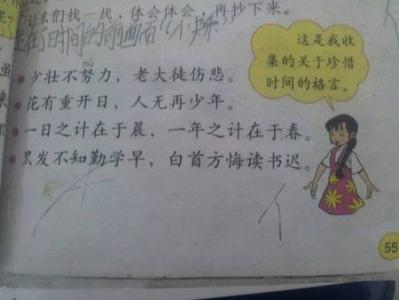 让我们找一找，体会体会，再抄下来。
这是我收
集的关于珍惜
时间的格言。
nǔ
少壮不努力，老大徒伤悲。
花有重开日，人无再少年。
一日之计在于晨，一年之计在于春。
黑发不知勤学早，白首方悔读书迟。
55